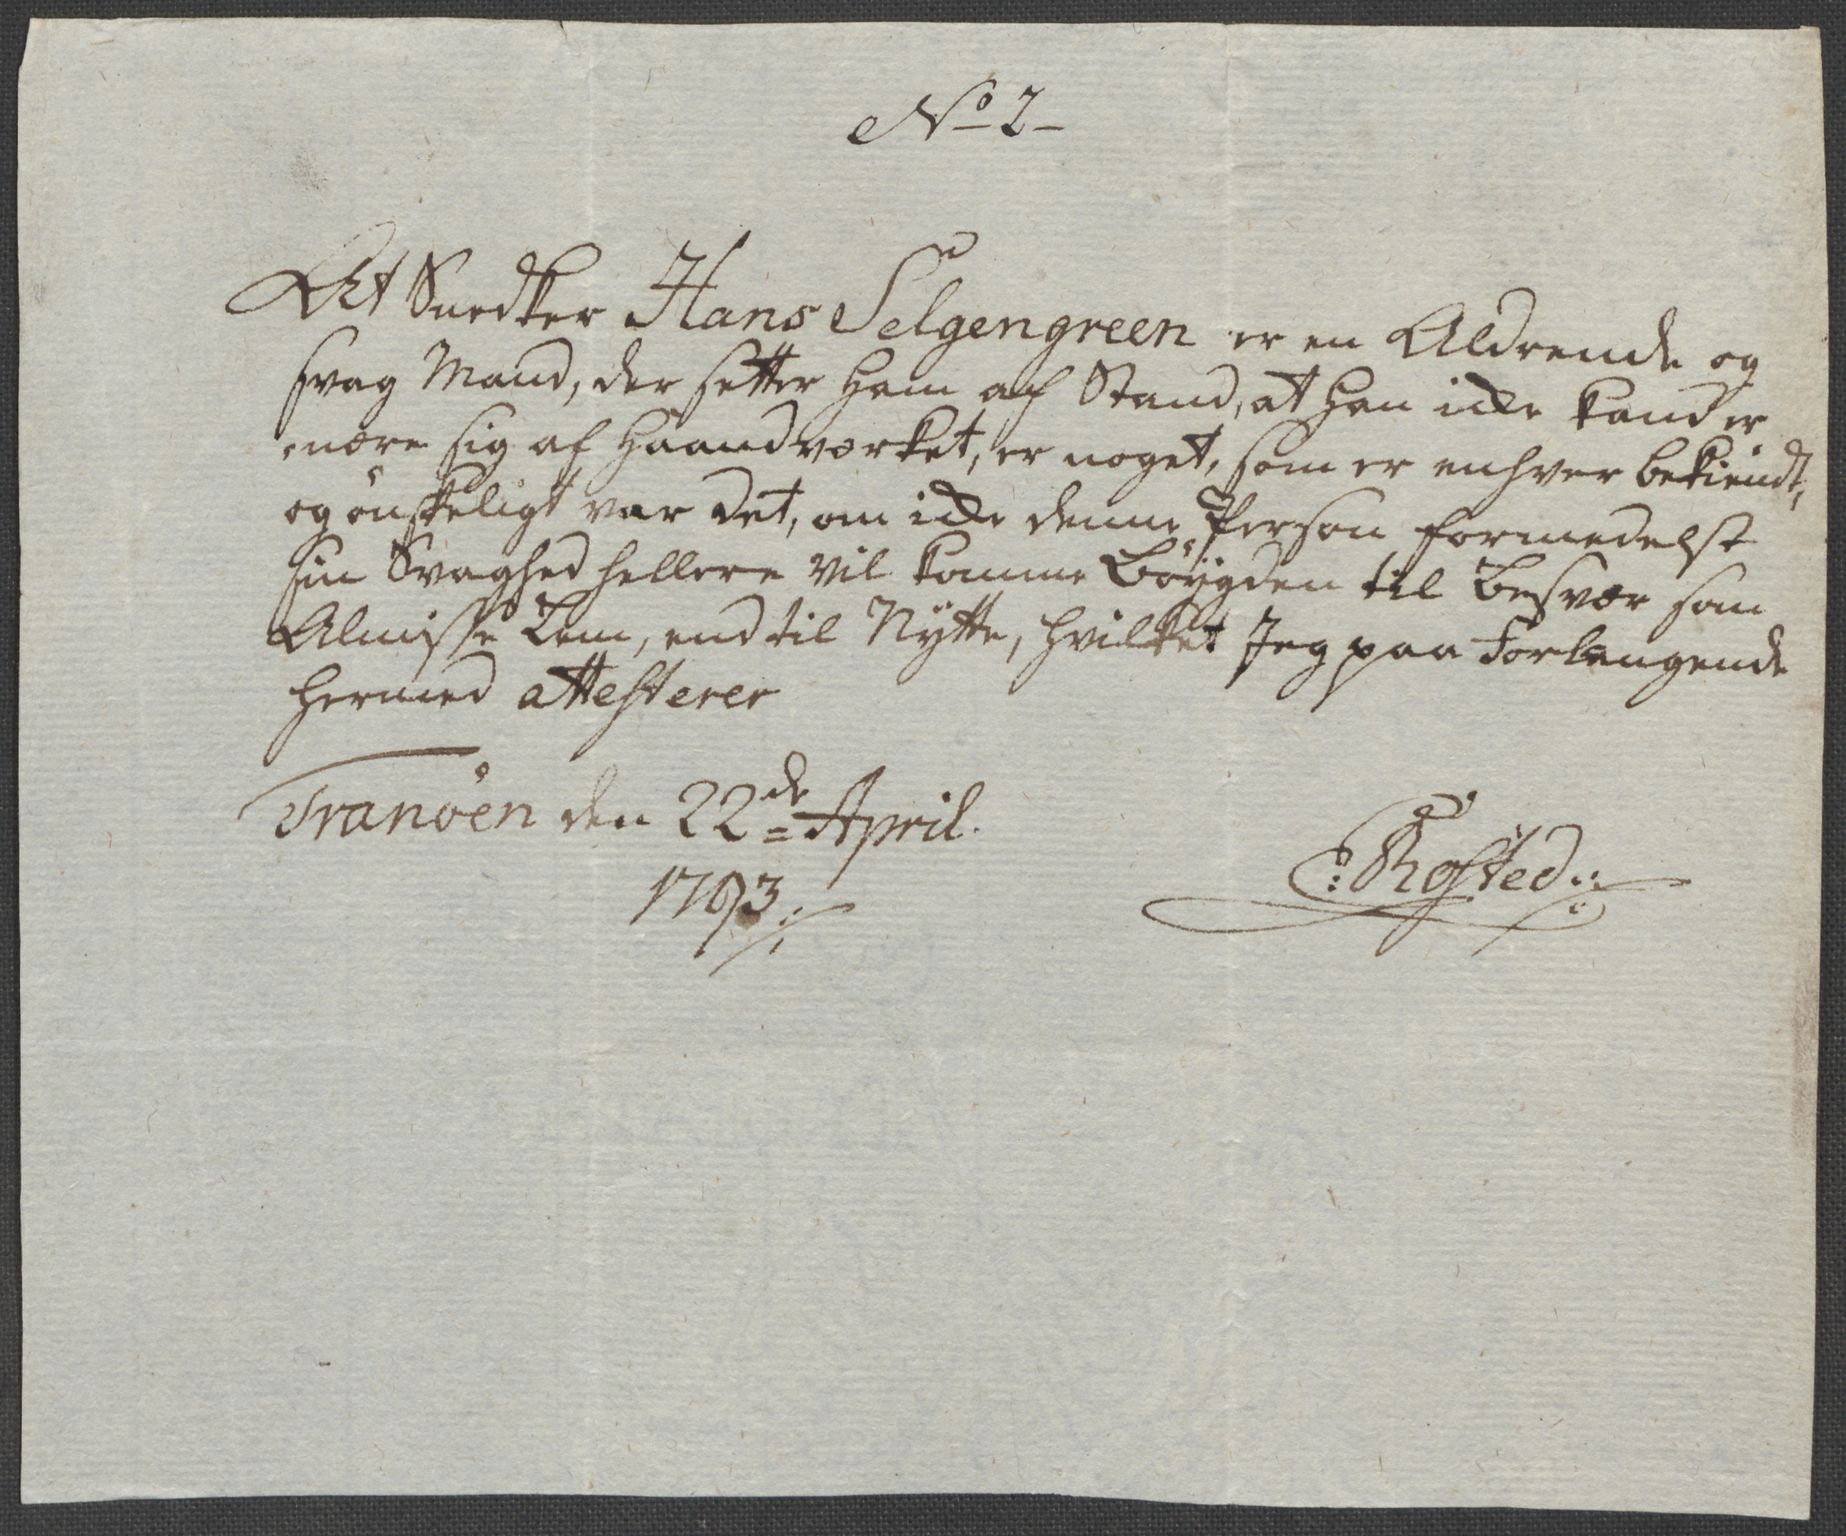 No 2
At Snedker Hans Selgengreen er en Aldrende og
svag Mand, der setter ham af Stand, at han icke kand er,,
,,nære sig af Haandværket, er noget, som er enhver bekiendt,
og önskeligt var det, om icke denne Person formedelst
sin Svaghed hellere vil komme Böygden til Besvær som
Almisse Lem, end til Nÿtte, hvilket Jeg paa Forlangende
hermed attesterer
Tranöen den 22de April.
1793
C: Rosted